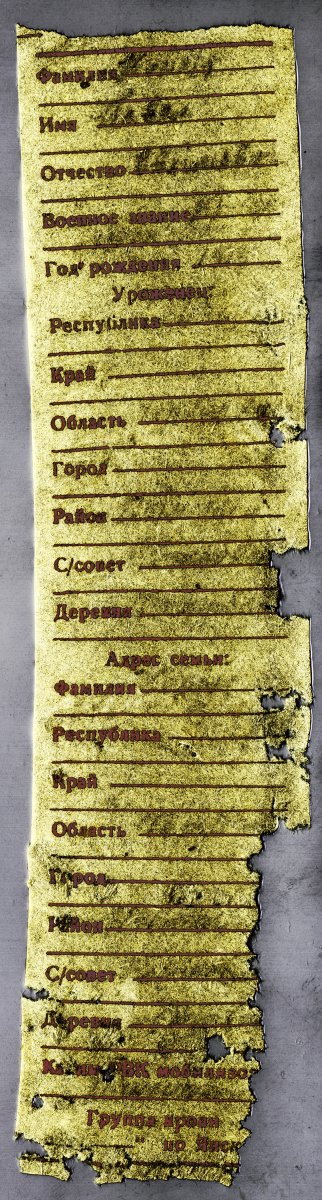 Фамилия
Имя
Отчество
Военное звание
Год рождения
Уроженец
Республика
Край
Область
Город
Район
С/совет
Деревня
Адрес семьи:
Фамилия
Республика
Край
Область
Город
Район
С/совет
Деревня
РВК мобилизо
Группа крови
" по Янс